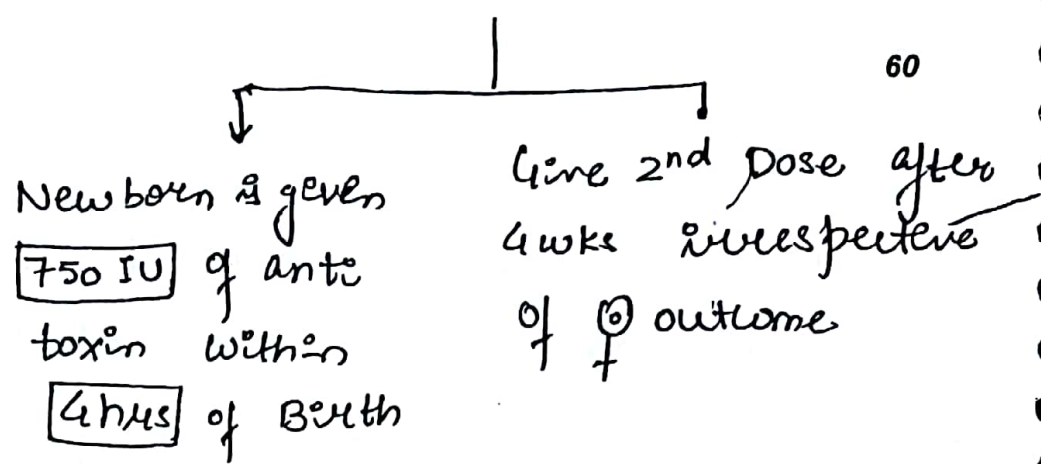 60
Newborn is given
750 IU of anti
toxin within
4 hrs of Birth
Give 2nd Dose after
4 wks irrespective
of outcome